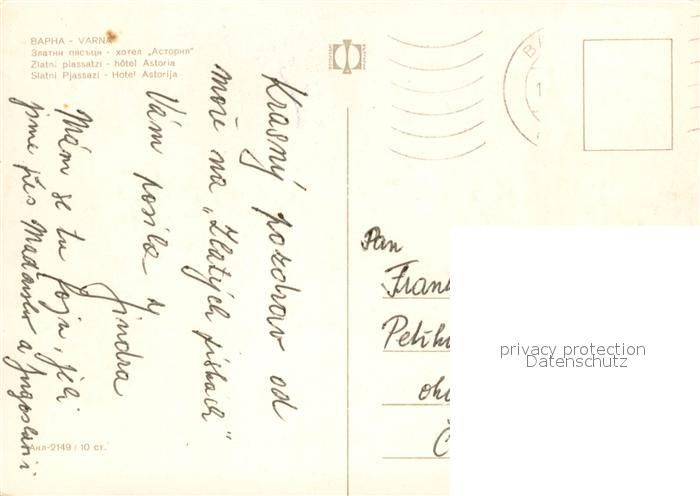 ВАРНА - VARNA
Златни пясъци - хотел „Астория"
Zlatni piassatzi - hôtel Astoria
Slatni Pjassazi - Hotel Astorija
Krasný pozdrav od
moře na „Zlatých pískách"
Vám posílá
Jindra
Mám se tu fajn, jeli
jsme přes Maďarsko a Jugoslavii
Анл-2149 / 10 ст.
Pan
Fran
Petřk
ok
Č
privacy protection
Datenschutz